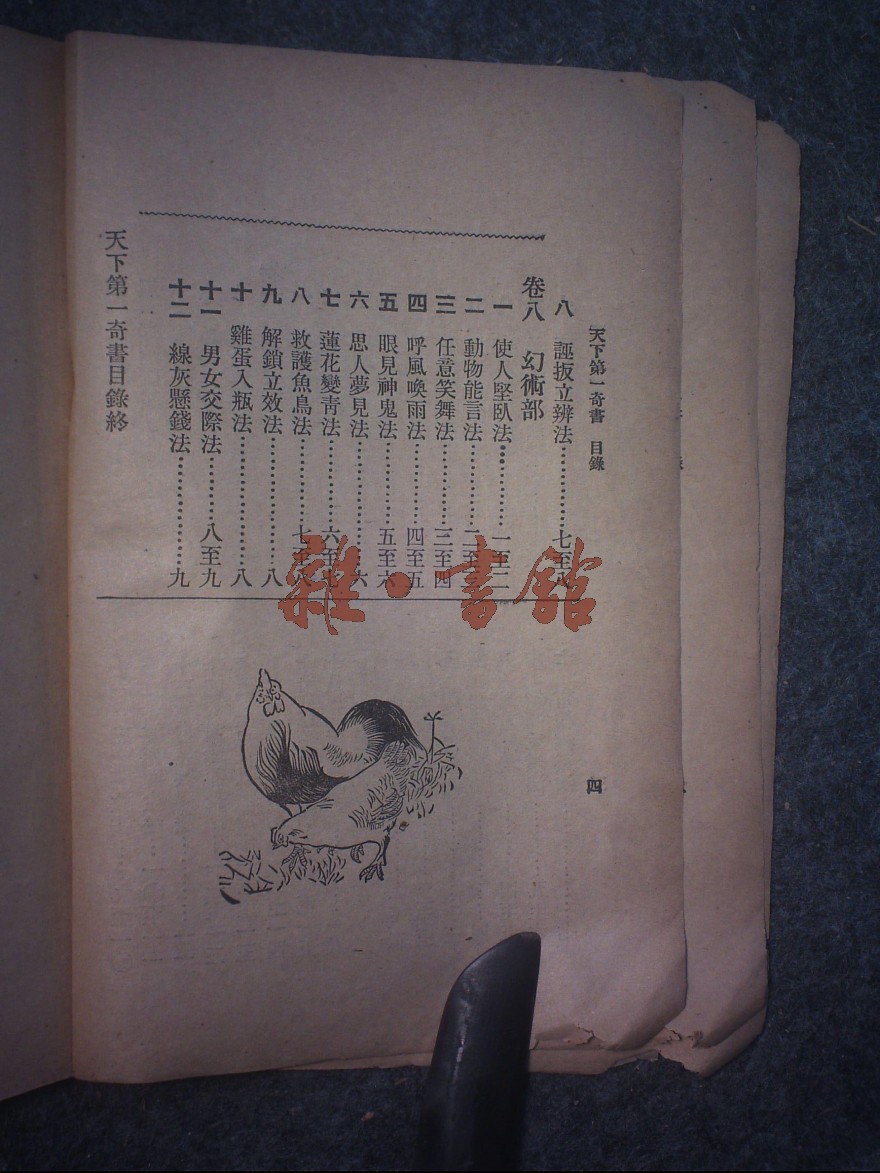 天下第一奇書　目錄
四
八　誣扳立辨法……………七至八
卷八　幻術部
一　使人堅臥法…………一至二
二　動物能言法…………二至
三　任意笑舞法…………三至四
四　呼風喚雨法…………四至五
五　眼見神鬼法…………五至六
六　思人夢見法……………六
七　蓮花變青法…………六至七
八　救護魚鳥法…………七至八
九　解鎖立效法……………八
十　雞蛋入瓶法……………八
十一　男女交際法………八至九
十二　線灰懸錢法…………九
天下第一奇書目錄終
雜·書館